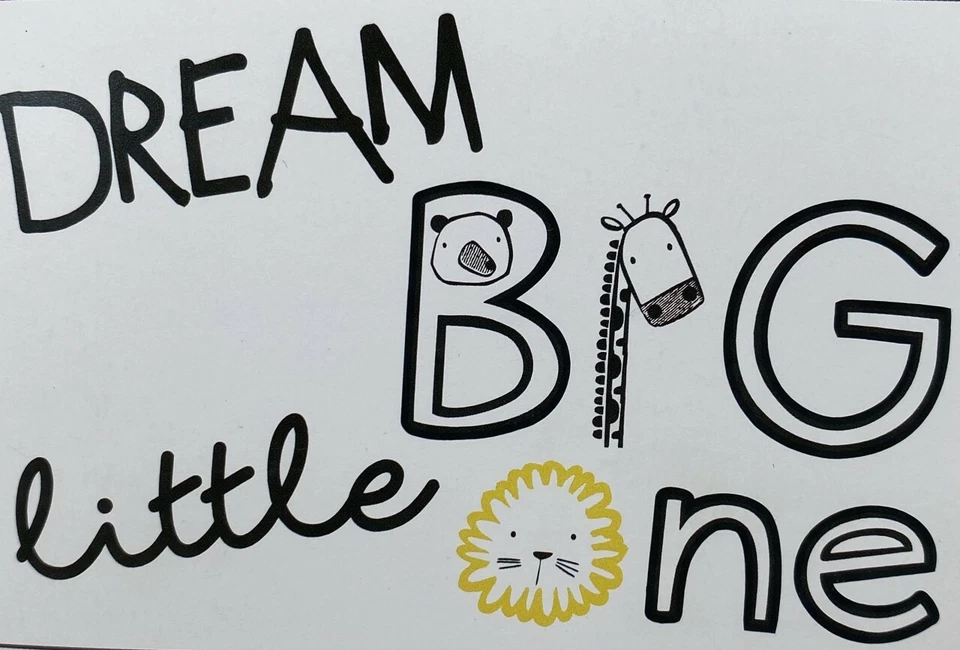 DREAM
BIG
little One